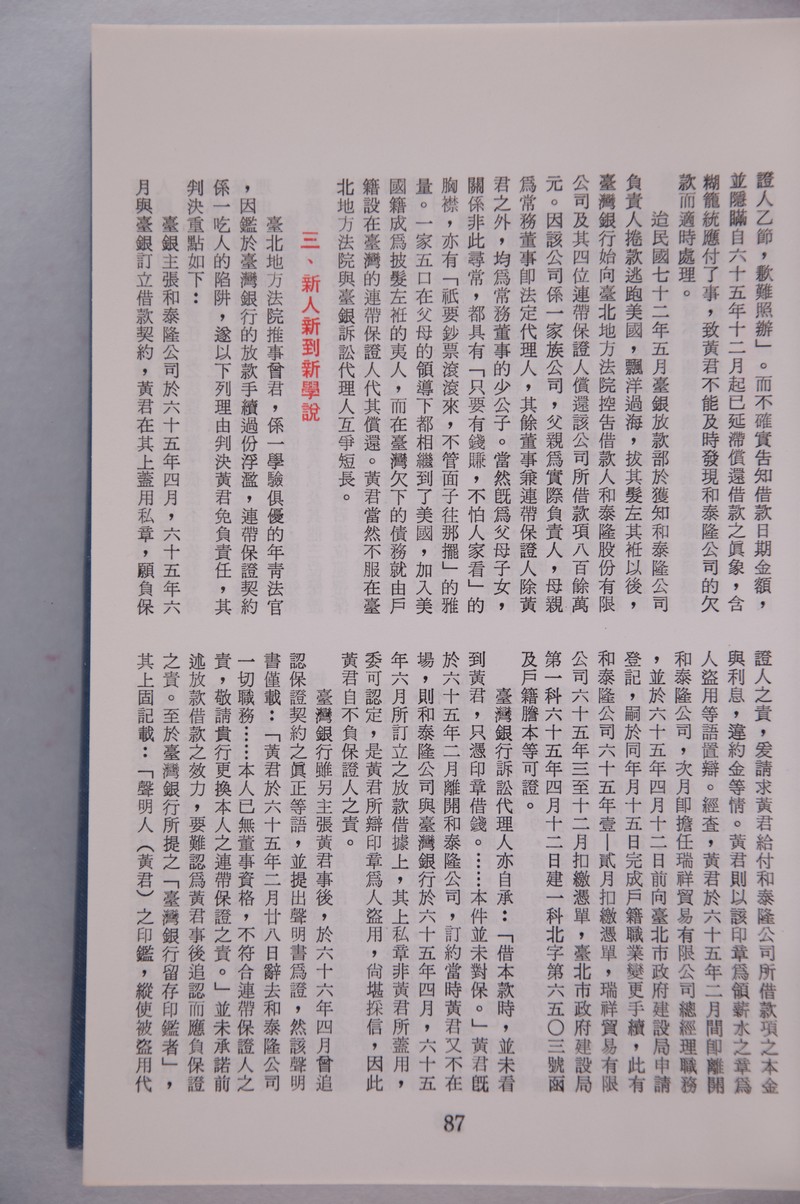 證人乙節，歉難照辦」。而不確實告知借款日期金額，
並隱瞞自六十五年十二月起已延滯償還借款之眞象，含
糊籠統應付了事，致黃君不能及時發現和泰隆公司的欠
款而適時處理。
迨民國七十二年五月臺銀放款部於獲知和泰隆公司
負責人捲款逃跑美國，飄洋過海，拔其髮左其袵以後，
臺灣銀行始向臺北地方法院控告借款人和泰隆股份有限
公司及其四位連帶保證人償還該公司所借款項八百餘萬
元。因該公司係一家族公司，父親爲實際負責人，母親
爲常務董事卽法定代理人，其餘董事兼連帶保證人除黃
君之外，均爲常務董事的少公子。當然旣爲父母子女，
關係非此尋常，都具有「只要有錢賺，不怕人家看」的
胸襟，亦有「祇要鈔票滾滾來，不管面子往那擺」的雅
量。一家五口在父母的領導下都相繼到了美國，加入美
國籍成爲披髮左袵的夷人，而在臺灣欠下的債務就由戶
籍設在臺灣的連帶保證人代其償還。黃君當然不服在臺
北地方法院與臺銀訴訟代理人互爭短長。
三、新人新到新學說
臺北地方法院推事曾君，係一學驗俱優的年青法官
，因鑑於臺灣銀行的放款手續過份浮濫，連帶保證契約
係一吃人的陷阱，遂以下列理由判決黃君免負責任，其
判決重點如下：
臺銀主張和泰隆公司於六十五年四月，六十五年六
月與臺銀訂立借款契約，黃君在其上蓋用私章，願負保
證人之責，爰請求黃君給付和泰隆公司所借款項之本金
與利息，違約金等情。黃君則以該印章爲領薪水之章爲
人盜用等語置辯。經查，黃君於六十五年二月間卽離開
和泰隆公司，次月卽擔任瑞祥貿易有限公司總經理職務
，並於六十五年四月十二日前向臺北市政府建設局申請
登記，嗣於同年月十五日完成戶籍職業變更手續，此有
和泰隆公司六十五年壹—貳月扣繳憑單，瑞祥貿易有限
公司六十五年三至十二月扣繳憑單，臺北市政府建設局
第一科六十五年四月十二日建一科北字第六五〇三號函
及戶籍謄本等可證。
臺灣銀行訴訟代理人亦自承：「借本款時，並未看
到黃君，只憑印章借錢。……本件並未對保。」黃君旣
於六十五年二月離開和泰隆公司，訂約當時黃君又不在
場，則和泰隆公司與臺灣銀行於六十五年四月，六十五
年六月所訂立之放款借據上，其上私章非黃君所蓋用，
委可認定，是黃君所辯印章爲人盜用，尙堪採信，因此
黃君自不負保證人之責。
臺灣銀行雖另主張黃君事後，於六十六年四月曾追
認保證契約之眞正等語，並提出聲明書爲證，然該聲明
書僅載：「黃君於六十五年二月廿八日辭去和泰隆公司
一切職務……本人已無董事資格，不符合連帶保證人之
責，敬請貴行更換本人之連帶保證之責。」並未承諾前
述放款借款之效力，要難認爲黃君事後追認而應負保證
之責。至於臺灣銀行所提之「臺灣銀行留存印鑑者」，
其上固記載：「聲明人（黃君）之印鑑，縱使被盜用代
87